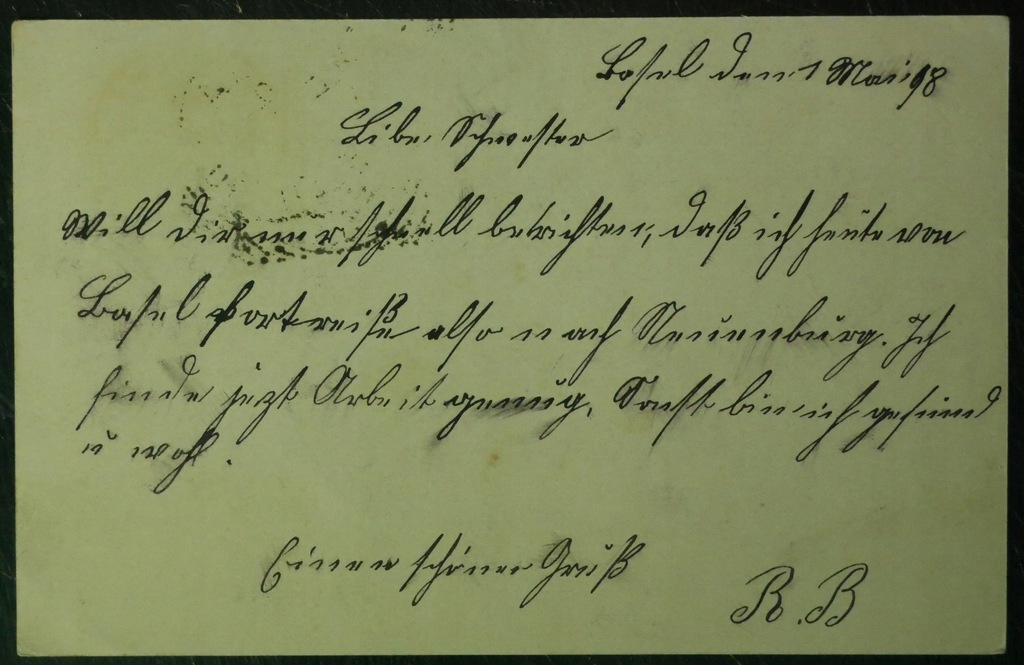 Basel den 1 Mai 98
Libe Schwester
Will dir nur schnell berichten, daß ich heute von
Basel fortreiße also nach Neuenburg. Ich
finde jezt Arbeit genug, Sonst bin ich gesund
u wohl.
Einen schönen Gruß
R. B